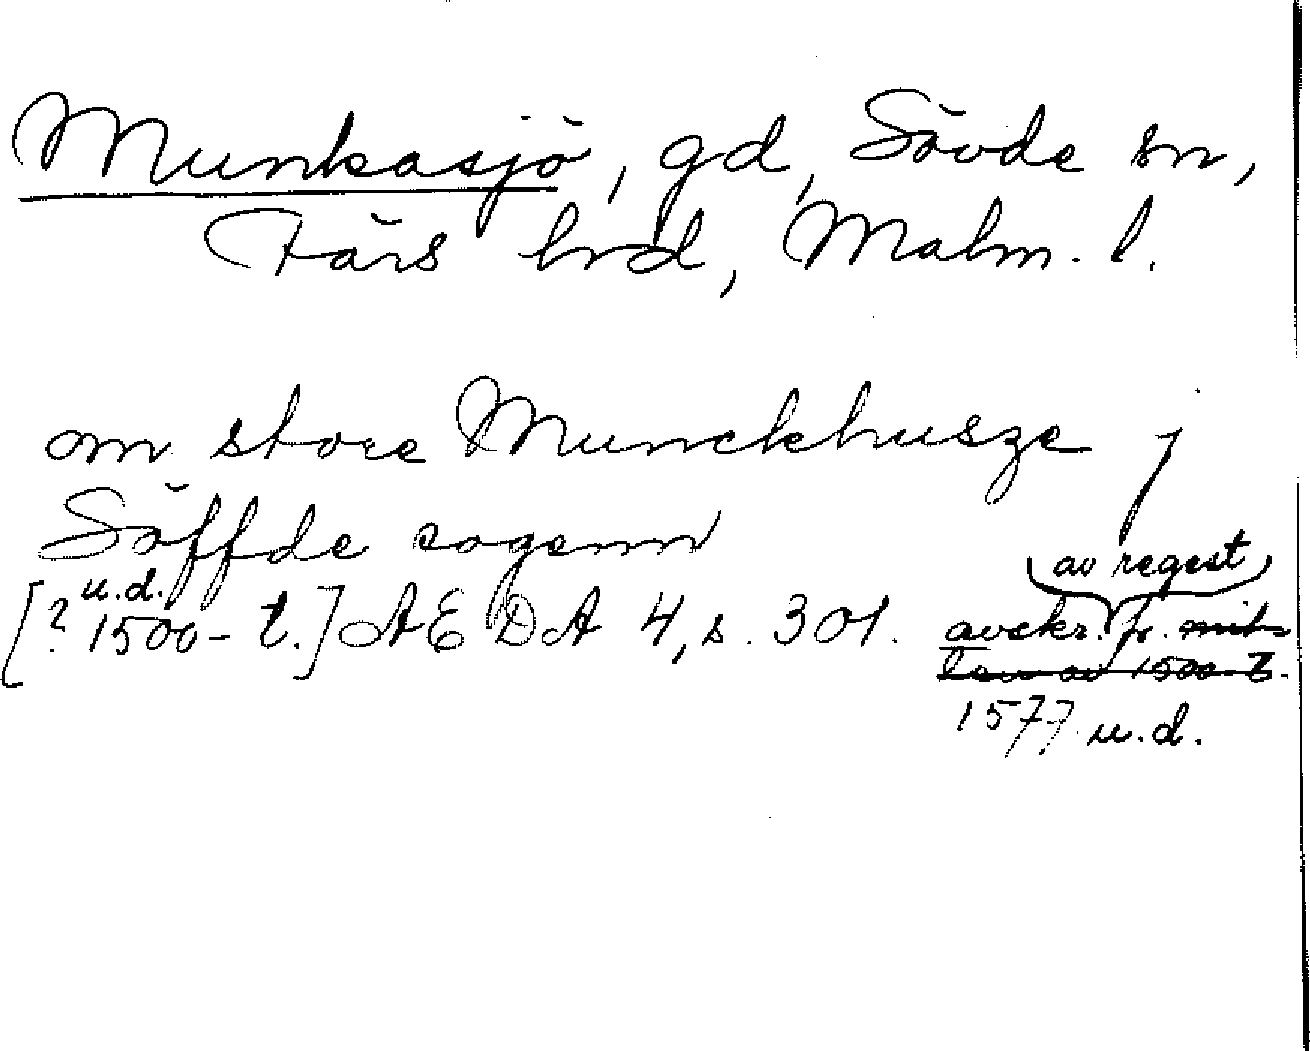 Munkasjö, gd, Sövde sn,
Färs hrd, Malm. l.
om store Munckhusze j
Söffde sogenn
u.d.
[? 1500-t.] AEDA 4, s. 301. avskr. fr. mit-
av regest
ten av 1500-t.
1577 u.d.